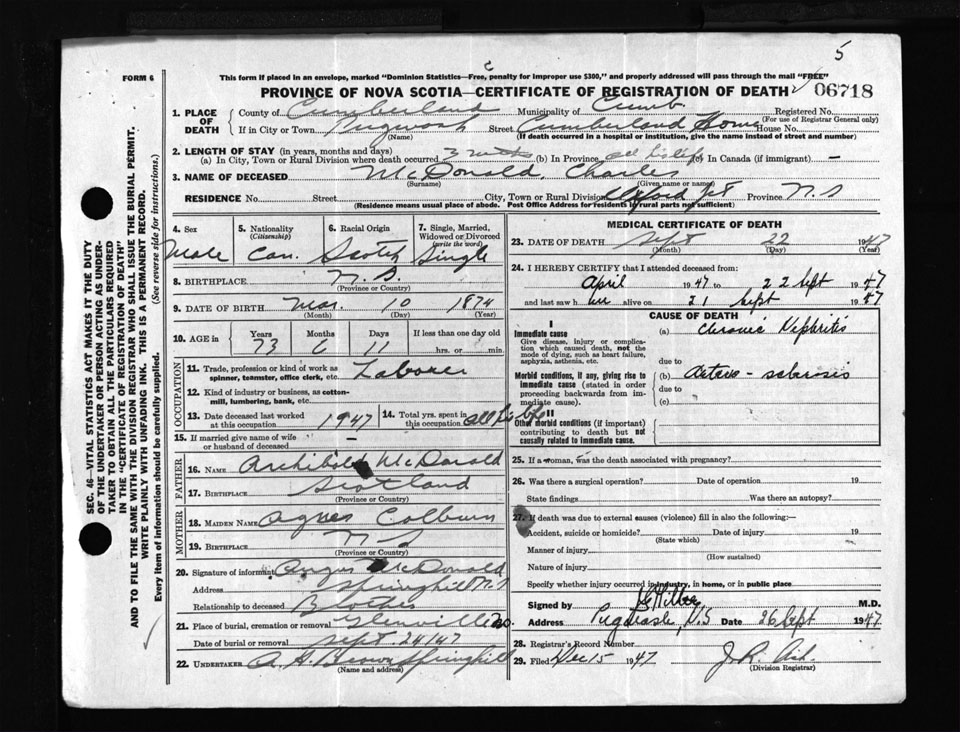 5
FORM 6
This form if placed in an envelope, marked "Dominion Statistics—Free, penalty for improper use $300," and properly addressed will pass through the mail "FREE"
PROVINCE OF NOVA SCOTIA—CERTIFICATE OF REGISTRATION OF DEATH 06718
1. PLACE OF DEATH
County of Cumberland Municipality of Cumb. Registered No.
(For use of Registrar General only)
If in City or Town Pugwash Street Cumberland Home House No.
(Name) (If death occurred in a hospital or institution, give the name instead of street and number)
2. LENGTH OF STAY (in years, months and days)
(a) In City, Town or Rural Division where death occurred 3 (b) In Province all his life (c) In Canada (if immigrant) —
3. NAME OF DECEASED McDonald, Charles
(Surname) (Given name or names)
RESIDENCE No. Street City, Town or Rural Division Oxford Jct Province N.S
(Residence means usual place of abode. Post Office Address for residents in rural parts not sufficient)
4. Sex
Male
5. Nationality
(Citizenship)
Can.
6. Racial Origin
Scotch
7. Single, Married, Widowed or Divorced
(write the word)
Single
8. BIRTHPLACE N.S.
(Province or Country)
9. DATE OF BIRTH Mar. 10 1874
(Month) (Day) (Year)
10. AGE in
Years Months Days If less than one day old
73 6 11 hrs. or min.
OCCUPATION
11. Trade, profession or kind of work as spinner, teamster, office clerk, etc. Laborer
12. Kind of industry or business, as cotton-mill, lumbering, bank, etc.
13. Date deceased last worked at this occupation 1947
14. Total yrs. spent in this occupation all his life
15. If married give name of wife or husband of deceased —
FATHER
16. NAME Archibald McDonald
17. BIRTHPLACE Scotland
(Province or Country)
MOTHER
18. MAIDEN NAME Agnes Colburn
19. BIRTHPLACE N.S
(Province or Country)
20. Signature of informant Angus McDonald
Address Springhill N.S
Relationship to deceased Brother
21. Place of burial, cremation or removal Glenville
Date of burial or removal Sept. 24/47
22. UNDERTAKER A. H. Brown Springhill
(Name and address)
MEDICAL CERTIFICATE OF DEATH
23. DATE OF DEATH Sept 22 1947
(Month) (Day) (Year)
24. I HEREBY CERTIFY that I attended deceased from:
April 1947 to 22 Sept 1947
and last saw him alive on 21 Sept 1947
CAUSE OF DEATH
I
Immediate cause
Give disease, injury or complication which caused death, not the mode of dying, such as heart failure, asphyxia, asthenia, etc.
(a) Chronic Nephritis
due to
Morbid conditions, if any, giving rise to immediate cause (stated in order proceeding backwards from immediate cause).
(b) Arterio-sclerosis
due to
(c)
II
Other morbid conditions (if important) contributing to death but not causally related to immediate cause.
25. If a woman, was the death associated with pregnancy?
26. Was there a surgical operation? Date of operation 19
State findings Was there an autopsy?
27. If death was due to external causes (violence) fill in also the following:—
Accident, suicide or homicide? Date of injury 19
(State which)
Manner of injury
(How sustained)
Nature of injury
Specify whether injury occurred in industry, in home, or in public place
Signed by M.D.
Address N.S Date 26 Sept 1947
28. Registrar's Record Number
29. Filed Dec 15 1947 J. R.
(Division Registrar)
SEC. 46—VITAL STATISTICS ACT MAKES IT THE DUTY
OF THE UNDERTAKER OR PERSON ACTING AS UNDER-
TAKER TO OBTAIN ALL THE PARTICULARS REQUIRED
IN THE "CERTIFICATE OF REGISTRATION OF DEATH"
AND TO FILE THE SAME WITH THE DIVISION REGISTRAR WHO SHALL ISSUE THE BURIAL PERMIT.
WRITE PLAINLY WITH UNFADING INK. THIS IS A PERMANENT RECORD.
Every item of information should be carefully supplied. (See reverse side for instructions.)